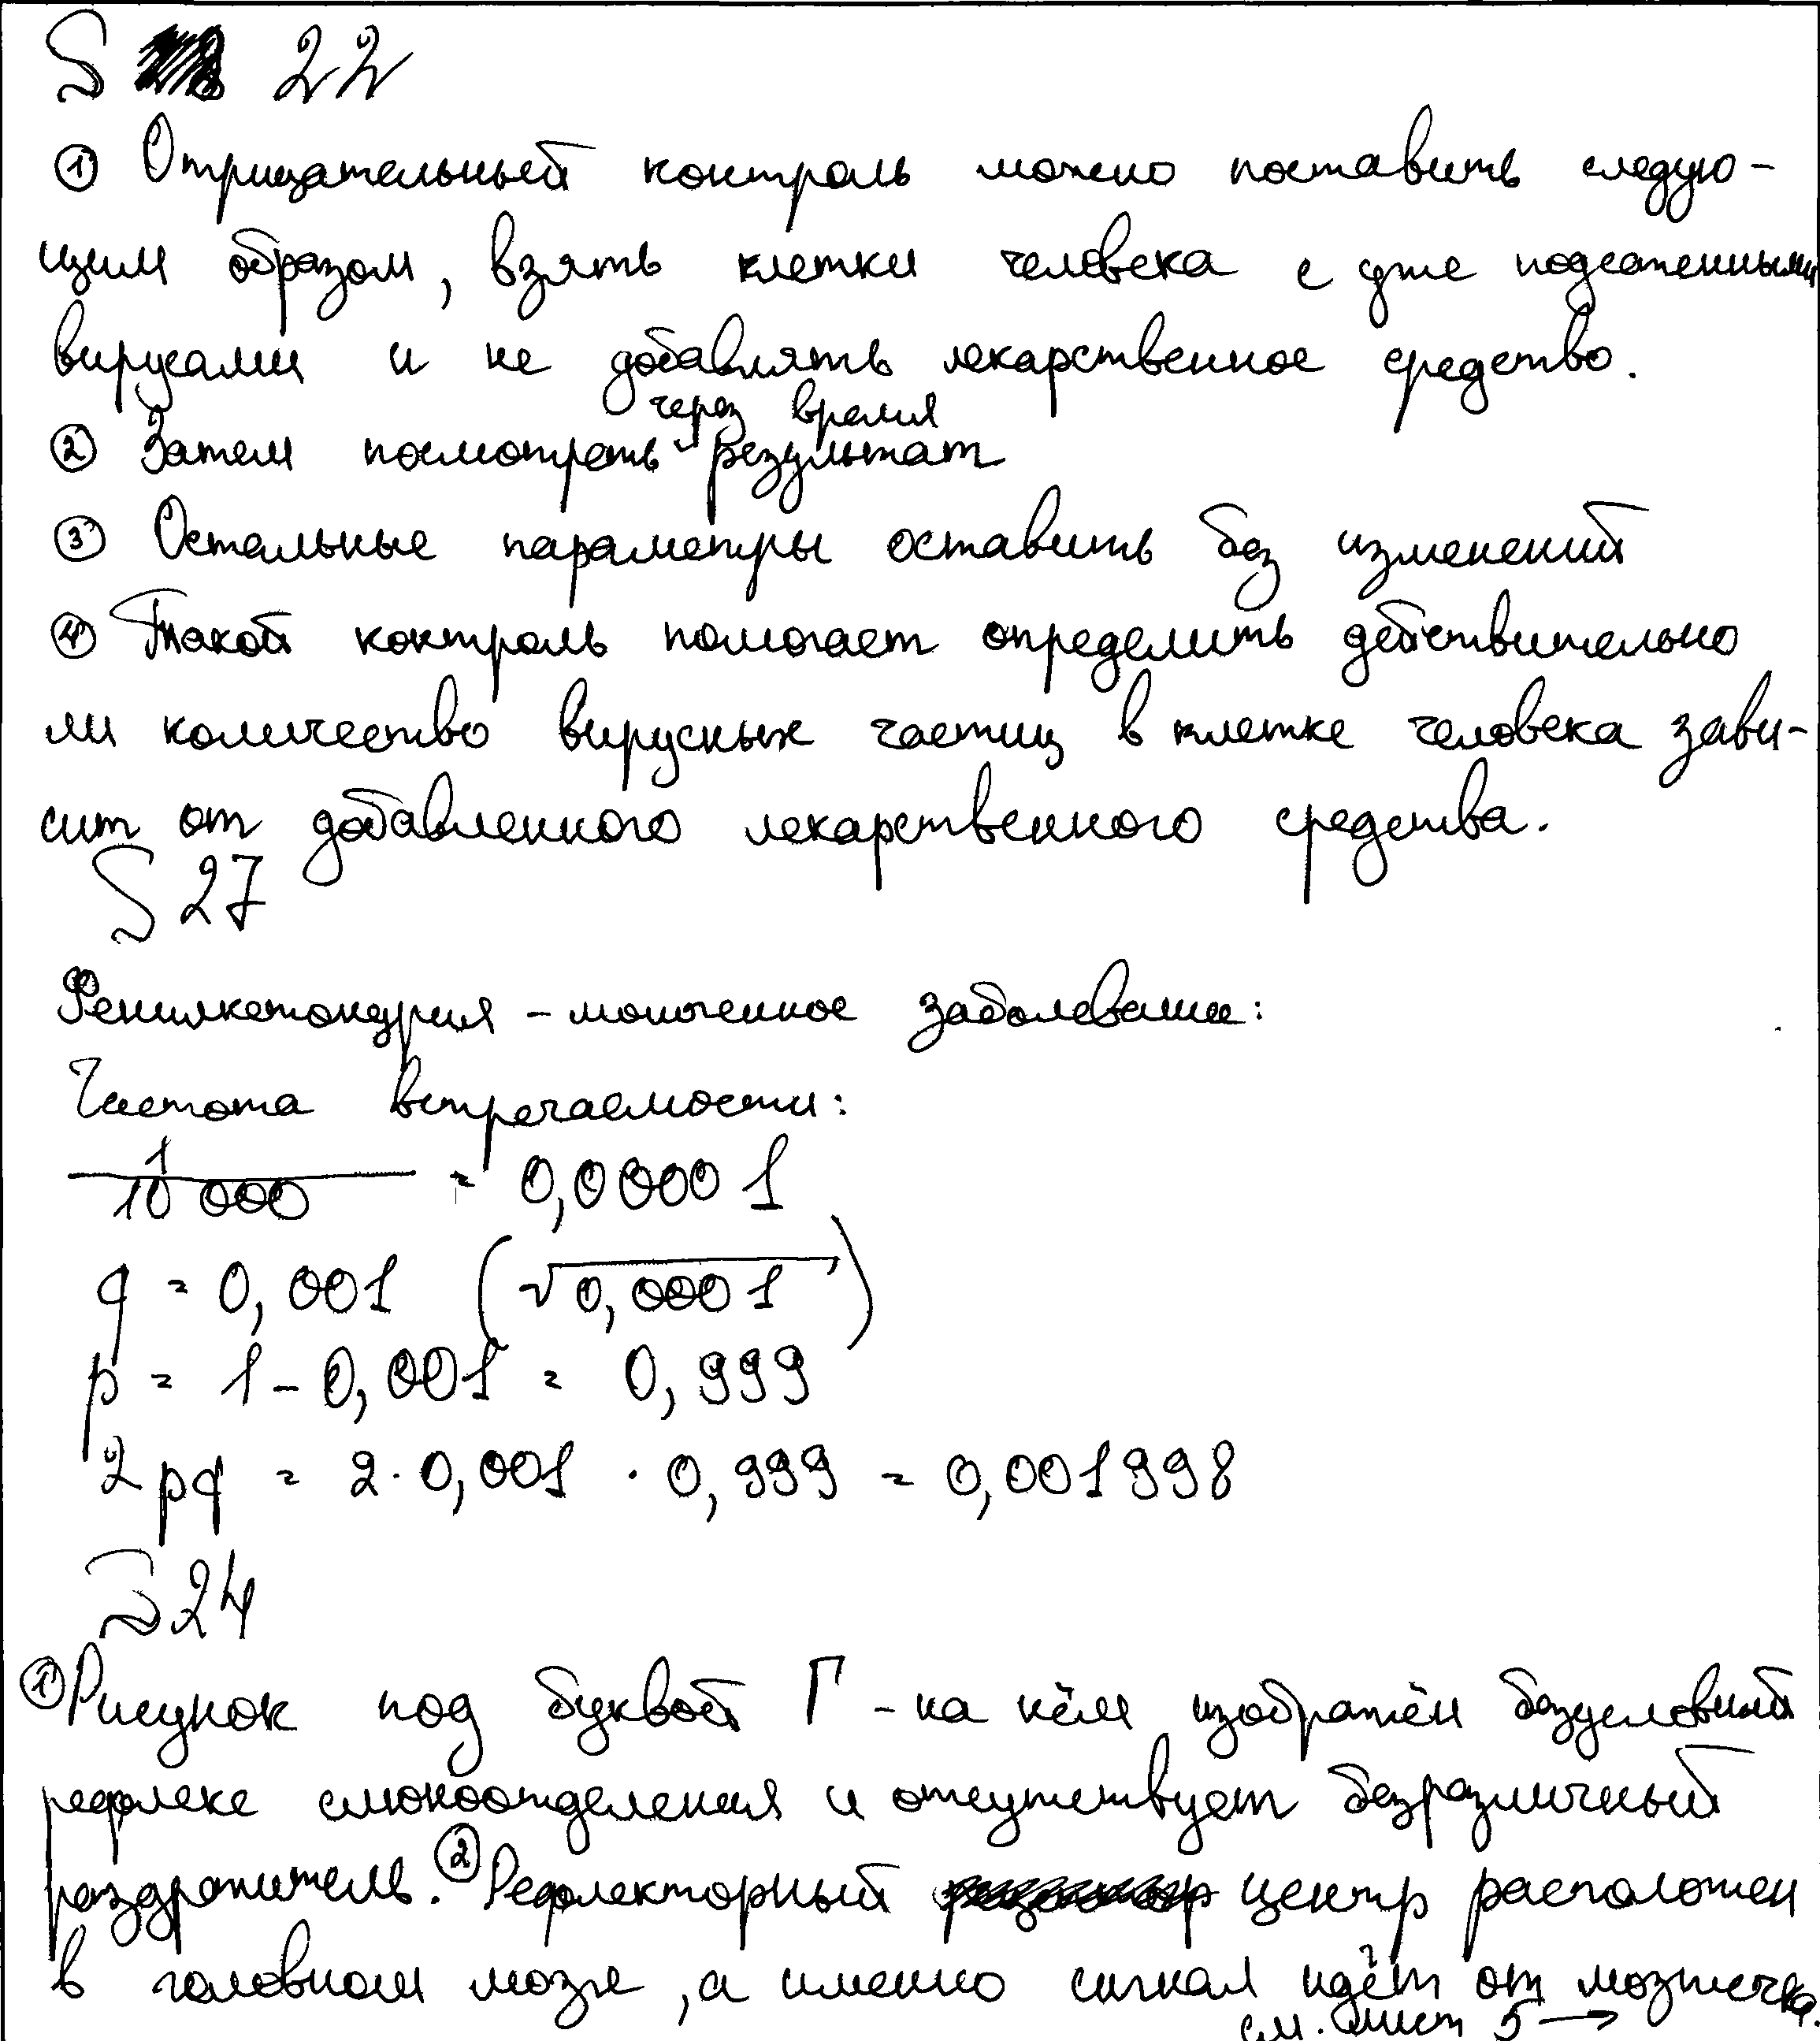 S 22
① Отрицательный контроль можно поставить следую-
щим образом, взять клетки человека с уже подсаженными
вирусами и не добавлять лекарственное средство.
через время
② Затем посмотреть результат
③ Остальные параметры оставить без изменений
④ Такой контроль помогает определить действительно
ли количество вирусных частиц в клетке человека зави-
сит от добавленного лекарственного средства.
S 27
Фенилкетонурия - моногенное заболевание:
Частота встречаемости:
1/10 000 = 0,00001
q = 0,001 (√0,0001)
p = 1 - 0,001 = 0,999
2pq = 2·0,001 · 0,999 = 0,001998
S 24
① Рисунок под буквой Г - на нём изображён безусловный
рефлекс слюноотделения и отсутствует безразличный
раздражитель. ② Рефлекторный центр расположен
в головном мозге, а именно сигнал идёт от мозжечка.
см. лист 5 →